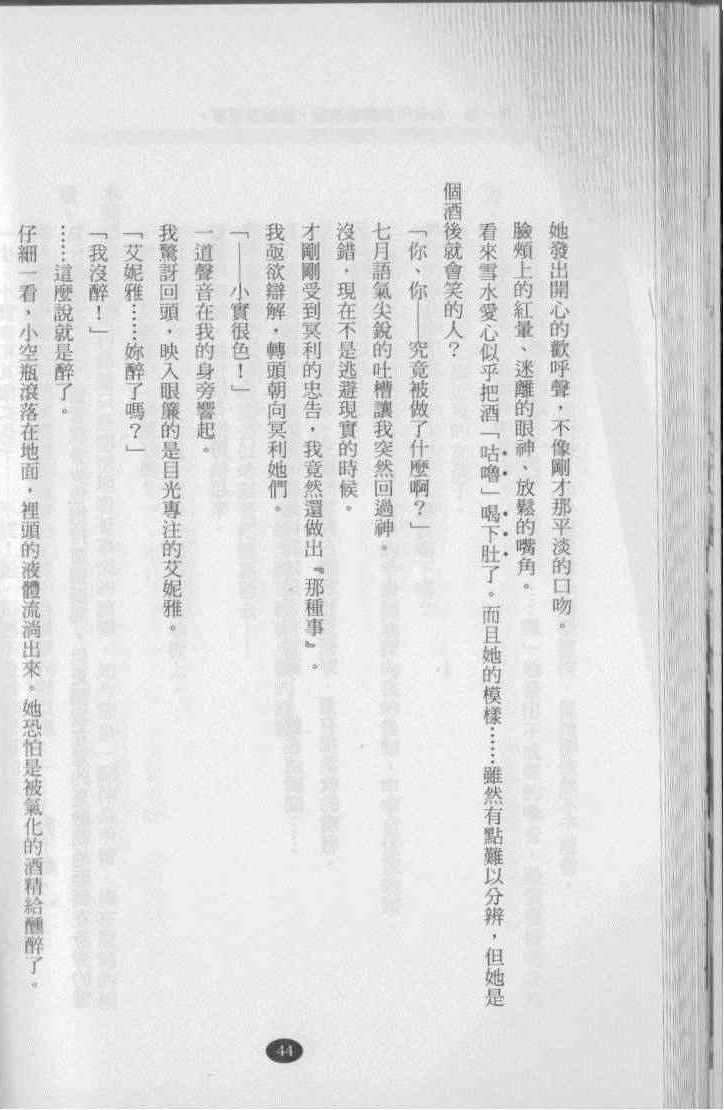 她發出開心的歡呼聲，不像剛才那平淡的口吻。
臉頰上的紅暈、迷離的眼神、放鬆的嘴角。
看來雪水愛心似乎把酒「咕嚕」喝下肚了。而且她的模樣……雖然有點難以分辨，但她是
個酒後就會笑的人？
「你、你——究竟被做了什麼啊？」
七月語氣尖銳的吐槽讓我突然回過神。
沒錯，現在不是逃避現實的時候。
才剛剛受到冥利的忠告，我竟然還做出『那種事』。
我亟欲辯解，轉頭朝向冥利她們。
「——小實很色！」
一道聲音在我的身旁響起。
我驚訝回頭，映入眼簾的是目光專注的艾妮雅。
「艾妮雅……妳醉了嗎？」
「我沒醉！」
……這麼說就是醉了。
仔細一看，小空瓶滾落在地面，裡頭的液體流淌出來。她恐怕是被氣化的酒精給醺醉了。
44